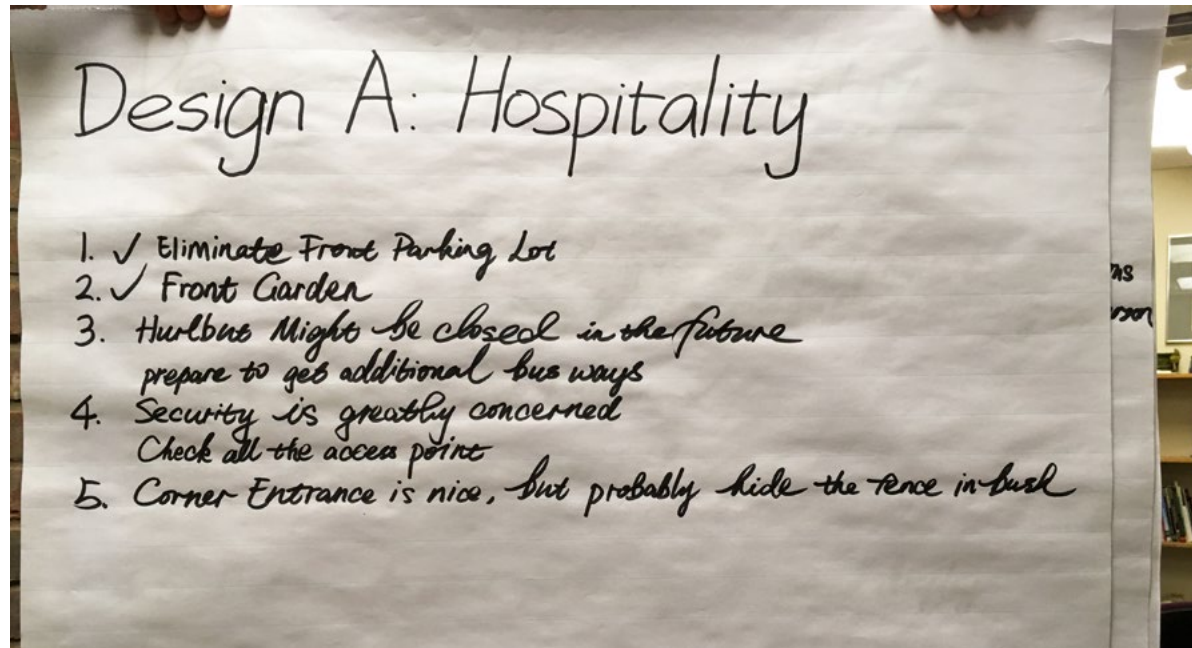 Design A: Hospitality
1. ✓ Eliminate Front Parking Lot
2. ✓ Front Garden
3. Hurlbut Might be closed in the future
prepare to get additional bus ways
4. Security is greatly concerned
Check all the access point
5. Corner Entrance is nice, but probably hide the fence in bush